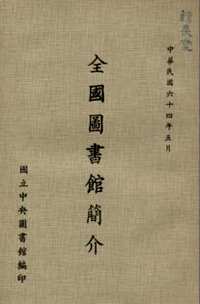 中華民國六十四年五月
全國圖書館簡介
國立中央圖書館編印